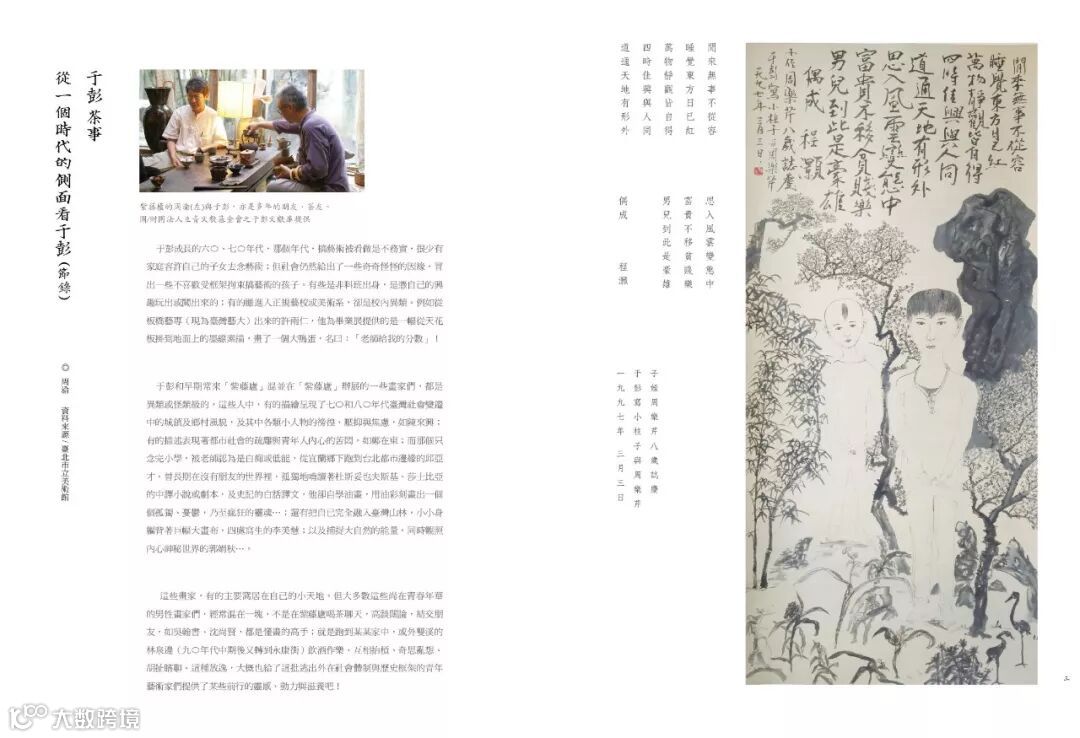 于彭茶事
從一個時代的側面看于彭(節錄)
◎ 周渝 資料來源/臺北市立美術館
紫藤廬的周渝(左)與于彭，亦是多年的朋友、茶友。
圖/財團法人立青文教基金會之于彭文獻庫提供
于彭成長的六〇、七〇年代，那個年代，搞藝術被看做是不務實，很少有
家庭容許自己的子女去念藝術；但社會仍然給出了一些奇奇怪怪的因緣，冒
出一些不喜歡受框架拘束搞藝術的孩子。有些是非科班出身，是憑自己的興
趣玩出或闖出來的；有的雖進入正規藝校或美術系，卻是校內異類。例如從
板橋藝專（現為臺灣藝大）出來的許雨仁，他為畢業展提供的是一幅從天花
板掛到地面上的墨線素描，畫了一個大鴨蛋，名曰：「老師給我的分數」！
于彭和早期常來「紫藤廬」混並在「紫藤廬」辦展的一些畫家們，都是
異類或怪類級的。這些人中，有的描繪呈現了七〇和八〇年代臺灣社會變遷
中的城鎮及鄉村風貌，及其中各類小人物的徬徨、壓抑與焦慮，如陳來興；
有的描述表現著都市社會的疏離與青年人內心的苦悶，如鄭在東；而那個只
念完小學，被老師認為是白痴或低能，從宜蘭鄉下跑到台北都市邊緣的邱亞
才，曾長期在沒有朋友的世界裡，孤獨地啃讀著杜斯妥也夫斯基、莎士比亞
的中譯小說或劇本，及史記的白話譯文，他卻自學油畫，用油彩刻畫出一個
個孤獨、憂鬱，乃至瘋狂的靈魂…；還有把自己完全融入臺灣山林，小小身
軀背著巨幅大畫布，四處寫生的李美慧；以及捕捉大自然的能量，同時觀照
內心神秘世界的郭娟秋…。
這些畫家，有的主要窩居在自己的小天地，但大多數這些尚在青春年華
的男性畫家們，經常混在一塊，不是在紫藤廬喝茶聊天，高談闊論，結交朋
友，如吳翰書、沈尚賢，都是懂畫的高手；就是跑到某某家中，或外雙溪的
林泉邊（九〇年代中期後又轉到永康街）飲酒作樂，互相抬槓、奇思亂想、
胡扯瞎聊。這種放逸，大概也給了這批逃出外在社會體制與歷史框架的青年
藝術家們提供了某些前行的靈感、動力與滋養吧！
閒來無事不從容
睡覺東方日已紅
萬物靜觀皆自得
四時佳興與人同
道通天地有形外
思入風雲變態中
富貴不移貧賤樂
男兒到此是豪雄
偶成 程灝
子姪周樂芹八歲誌慶
于彭寫小桂子與周樂芹
一九九七年 三月三日
閒來無事不從容
睡覺東方日已紅
萬物靜觀皆自得
四時佳興與人同
道通天地有形外
思入風雲變態中
富貴不移貧賤樂
男兒到此是豪雄
偶成 程灝
子侄周樂芹八歲誌慶
于彭寫小桂子與周樂芹
一九九七年三月三日
三
大数跨境